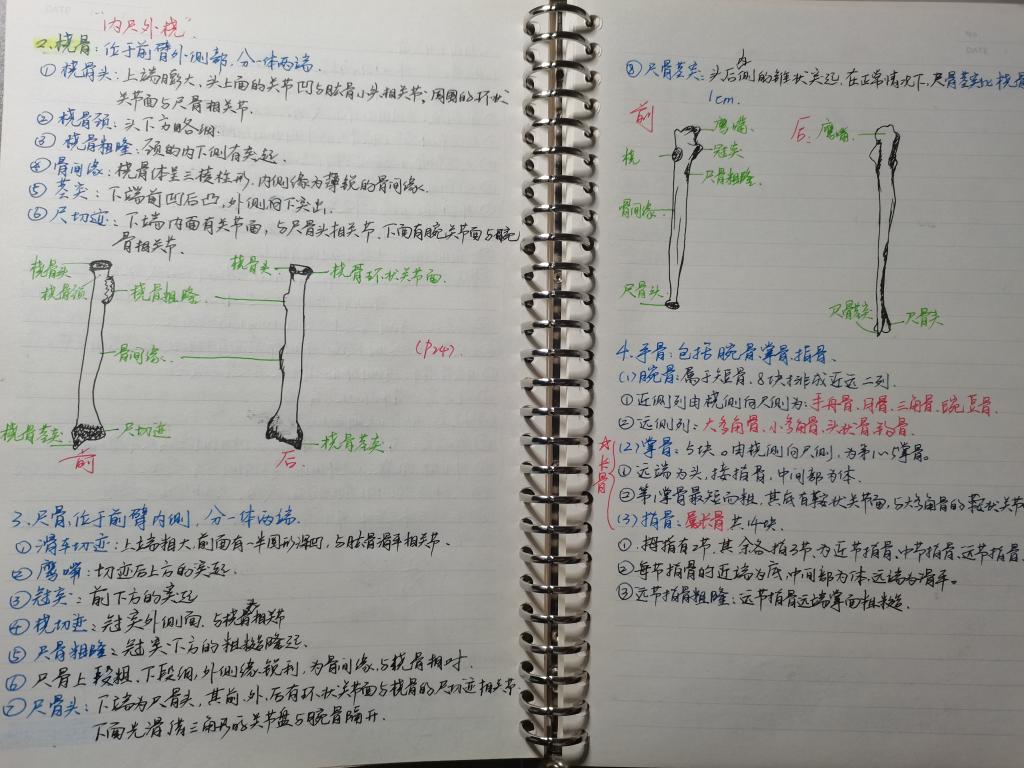 "内尺外桡"
2.桡骨:位于前臂外侧部,分一体两端.
①桡骨头:上端膨大,头上面的关节凹与肱骨小头相关节;周围的环状
关节面与尺骨相关节.
②桡骨颈:头下方略细.
③桡骨粗隆:颈的内下侧有突起.
④骨间缘:桡骨体呈三棱柱形,内侧缘为薄锐的骨间缘.
⑤茎突:下端前凹后凸,外侧向下突出.
⑥尺切迹:下端内面有关节面,与尺骨头相关节.下面有腕关节面与腕
骨相关节.
桡骨头
桡骨颈
桡骨粗隆
骨间缘
桡骨茎突
尺切迹
前
桡骨头
桡骨环状关节面
桡骨茎突
后
(P24).
3.尺骨,位于前臂内侧,分一体两端.
①滑车切迹:上端粗大,前面有一半圆形深凹,与肱骨滑车相关节.
②鹰嘴:切迹后上方的突起.
③冠突:前下方的突起
④桡切迹:冠突外侧面,与桡骨头相关节
⑤尺骨粗隆:冠突下方的粗糙隆起.
⑥尺骨上段粗,下段细,外侧缘锐利,为骨间缘,与桡骨相对.
⑦尺骨头:下端为尺骨头,其前、外、后有环状关节面与桡骨的尺切迹相关节.
下面光滑借三角形的关节盘与腕骨隔开.
⑧尺骨茎突:头后内侧的锥状突起,在正常情况下,尺骨茎突比桡骨
1cm.
前
鹰嘴
冠突
桡
尺骨粗隆
骨间缘
尺骨头
后:鹰嘴
尺骨茎突
尺骨头
4.手骨:包括腕骨掌骨指骨.
(1)腕骨:属于短骨,8块排成近远二列.
①近侧列由桡侧向尺侧为:手舟骨、月骨、三角骨、豌豆骨.
②远侧列:大多角骨、小多角骨、头状骨、钩骨.
☆长骨
(2)掌骨:5块。由桡侧向尺侧,为第1~5掌骨。
①远端为头,接指骨,中间部为体.
②第1掌骨最短而粗,其底有鞍状关节面,与大多角骨的鞍状关节
(3)指骨:属长骨共14块.
①拇指有2节,其余各指3节,为近节指骨、中节指骨、远节指骨.
②每节指骨的近端为底,中间部为体,远端为滑车。
③远节指骨粗隆:远节指骨远端掌面粗糙.